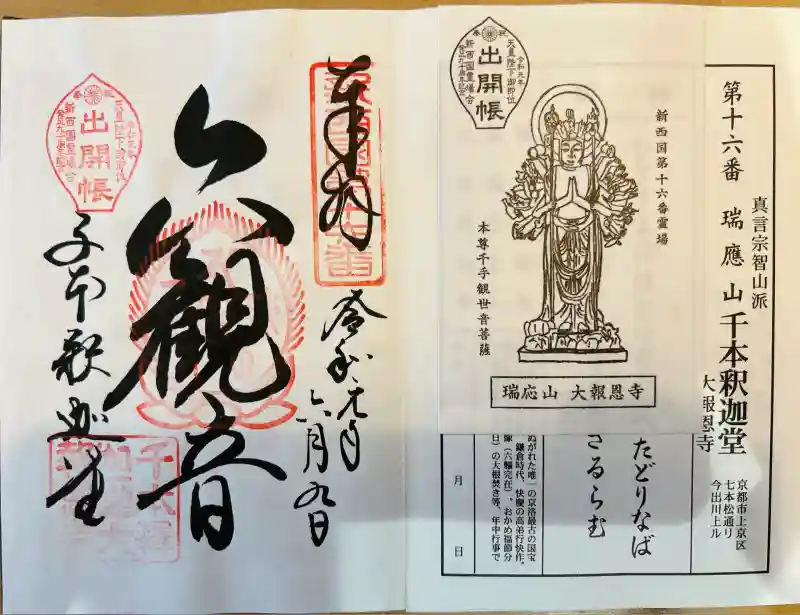 第十六番 瑞應山千本釈迦堂
真言宗智山派
大報恩寺
京都市上京区
七本松通り
今出川上ル
たどりなば
さるらむ
ぬがれた唯一の京洛最古の国宝
鎌倉時代、快慶の高弟行快作。
像(六軀完在)、おかめ福節分
日)の大根焚き等、年中行事で
月 日
天皇陛下御即位
令和元年
奉祝
出開帳
新西国霊場会
新西国第十六番霊場
本尊千手観世音菩薩
瑞応山 大報恩寺
奉拝
令和元年
六月九日
六観音
千本釈迦堂
奉祝
天皇陛下御即位
令和元年
出開帳
新西国霊場会